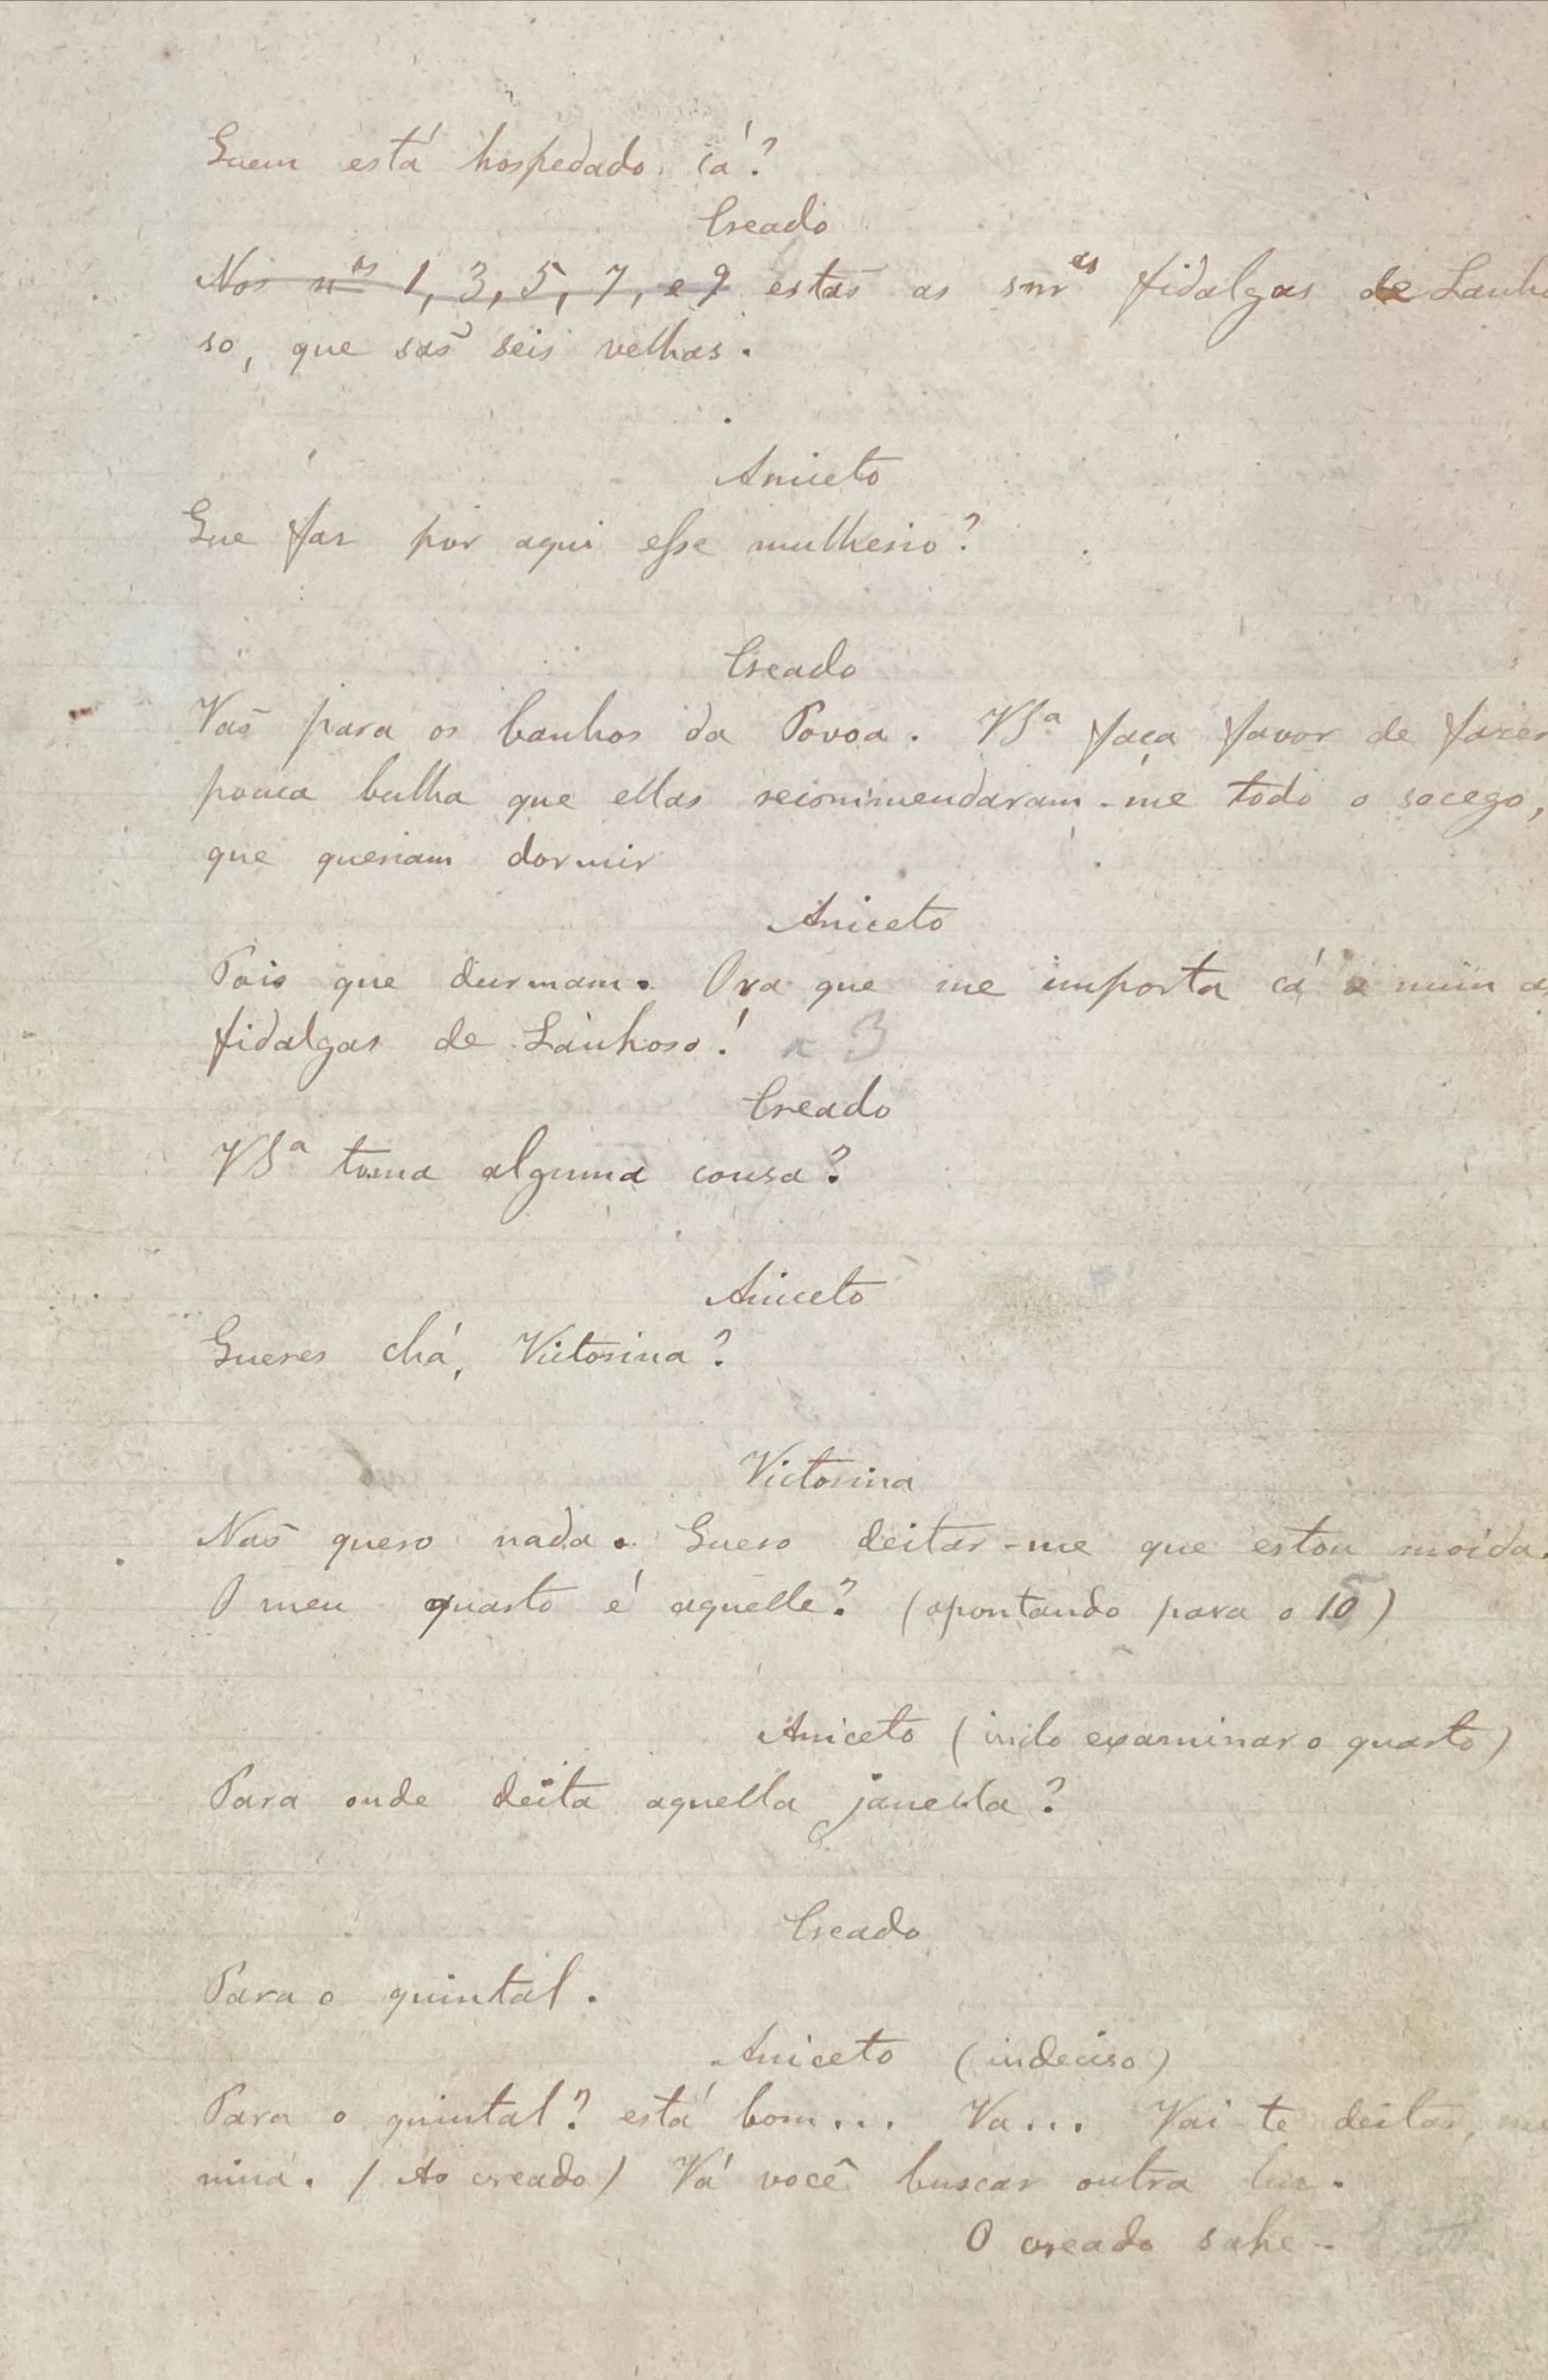 Quem está hospedado cá?
Creado
Nos nºs 1, 3, 5, 7, e 9 estão as snrªs fidalgas de Lanho
so, que são seis velhas.
Aniceto
Que faz por aqui esse mulherio?
Creado
Vão para os banhos da Povoa. VSª faça favor de fazer
pouca bulha que ellas recommendaram-me todo o socego,
que queriam dormir
Aniceto
Pois que durmam. Ora que me importa cá a mim as
fidalgas de Lanhoso! a 3
Creado
VSª toma alguma cousa?
Aniceto
Queres chá, Victorina?
Victorina
Não quero nada. Quero deitar-me que estou moida.
O meu quarto é aquelle? (apontando para o 10)
Aniceto (indo examinar o quarto)
Para onde deita aquella janella?
Creado
Para o quintal.
Aniceto (indeciso)
Para o quintal? está bom... Va... Vai-te deitar, me
nina. (Ao creado) Vá você buscar outra luz.
O creado sahe.